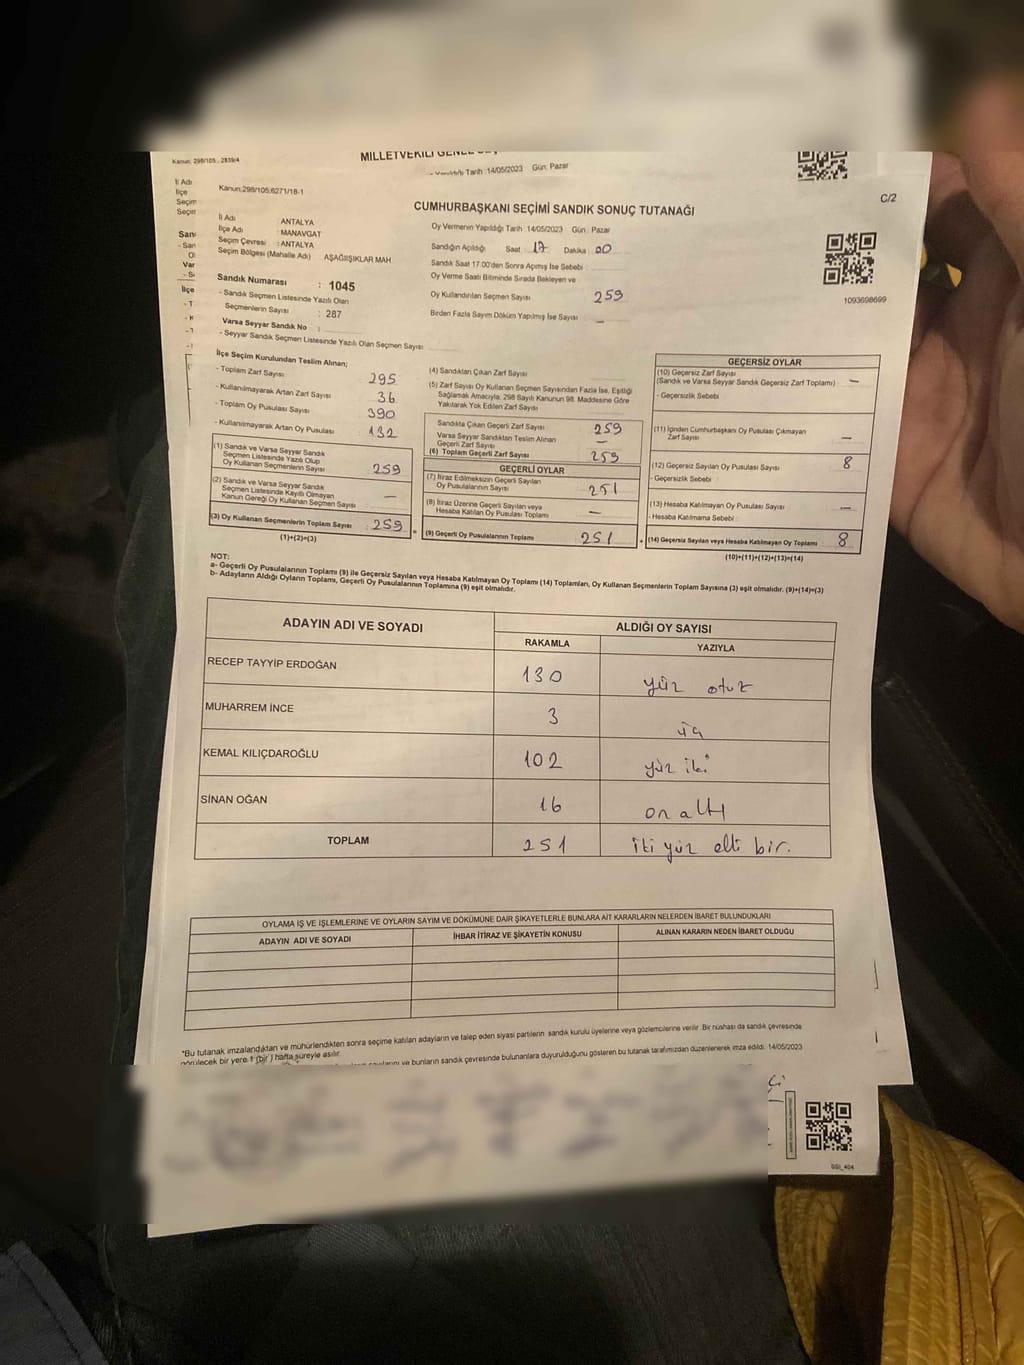 Kanun: 298/105 , 2839/4
MİLLETVEKİLİ GENEL
Tarih :14/05/2023 Gün: Pazar
İl Adı
İlçe
Seçim
Seçim
Kanun:298/105:6271/18-1
C/2
CUMHURBAŞKANI SEÇİMİ SANDIK SONUÇ TUTANAĞI
İl Adı : ANTALYA
İlçe Adı : MANAVGAT
Seçim Çevresi : ANTALYA
Seçim Bölgesi (Mahalle Adı) AŞAĞIIŞIKLAR MAH
Oy Vermenin Yapıldığı Tarih :14/05/2023 Gün : Pazar
Sandığın Açıldığı Saat 17 Dakika 00
Sandık Saat 17:00'den Sonra Açımış İse Sebebi :
Oy Verme Saati Bitiminde Sırada Bekleyen ve
Oy Kullandırılan Seçmen Sayısı 259
Birden Fazla Sayım Döküm Yapılmış İse Sayısı : –
1093698699
Sandık Numarası : 1045
- Sandık Seçmen Listesinde Yazılı Olan
Seçmenlerin Sayısı : 287
Varsa Seyyar Sandık No :
- Seyyar Sandık Seçmen Listesinde Yazılı Olan Seçmen Sayısı
İlçe Seçim Kurulundan Teslim Alınan;
- Toplam Zarf Sayısı 295
- Kullanılmayarak Artan Zarf Sayısı 36
- Toplam Oy Pusulası Sayısı 390
- Kullanılmayarak Artan Oy Pusulası : 132
(1) Sandık ve Varsa Seyyar Sandık
Seçmen Listesinde Yazılı Olup
Oy Kullanan Seçmenlerin Sayısı : 259
(2) Sandık ve Varsa Seyyar Sandık
Seçmen Listesinde Kayıtlı Olmayan
Kanun Gereği Oy Kullanan Seçmen Sayısı : –
(3) Oy Kullanan Seçmenlerin Toplam Sayısı : 259
(1)+(2)=(3)
=
(4) Sandıktan Çıkan Zarf Sayısı :
(5) Zarf Sayısı Oy Kullanan Seçmen Sayısından Fazla İse, Eşitliği
Sağlamak Amacıyla; 298 Sayılı Kanunun 98. Maddesine Göre
Yakılarak Yok Edilen Zarf Sayısı :
Sandıkta Çıkan Geçerli Zarf Sayısı : 259
Varsa Seyyar Sandıktan Teslim Alınan
Geçerli Zarf Sayısı : –
(6) Toplam Geçerli Zarf Sayısı : 259
GEÇERLİ OYLAR
(7) İtiraz Edilmeksizin Geçerli Sayılan
Oy Pusulalarının Sayısı : 251
(8) İtiraz Üzerine Geçerli Sayılan veya
Hesaba Katılan Oy Pusulası Toplamı : –
(9) Geçerli Oy Pusulalarının Toplamı : 251
+
GEÇERSİZ OYLAR
(10) Geçersiz Zarf Sayısı
(Sandık ve Varsa Seyyar Sandık Geçersiz Zarf Toplamı) : –
- Geçersizlik Sebebi
(11) İçinden Cumhurbaşkanı Oy Pusulası Çıkmayan
Zarf Sayısı : –
(12) Geçersiz Sayılan Oy Pusulası Sayısı : 8
- Geçersizlik Sebebi :
(13) Hesaba Katılmayan Oy Pusulası Sayısı : –
- Hesaba Katılmama Sebebi :
(14) Geçersiz Sayılan veya Hesaba Katılmayan Oy Toplamı : 8
(10)+(11)+(12)+(13)=(14)
NOT:
a- Geçerli Oy Pusulalarının Toplamı (9) ile Geçersiz Sayılan veya Hesaba Katılmayan Oy Toplamı (14) Toplamları, Oy Kullanan Seçmenlerin Toplam Sayısına (3) eşit olmalıdır. (9)+(14)=(3)
b- Adayların Aldığı Oyların Toplamı, Geçerli Oy Pusulalarının Toplamına (9) eşit olmalıdır.
ADAYIN ADI VE SOYADI ALDIĞI OY SAYISI
RAKAMLA YAZIYLA
RECEP TAYYİP ERDOĞAN 130 yüz otuz
MUHARREM İNCE 3 üç
KEMAL KILIÇDAROĞLU 102 yüz iki
SİNAN OĞAN 16 on altı
TOPLAM 251 iki yüz elli bir.
OYLAMA İŞ VE İŞLEMLERİNE VE OYLARIN SAYIM VE DÖKÜMÜNE DAİR ŞİKAYETLERLE BUNLARA AİT KARARLARIN NELERDEN İBARET BULUNDUKLARI
ADAYIN ADI VE SOYADI İHBAR İTİRAZ VE ŞİKAYETİN KONUSU ALINAN KARARIN NEDEN İBARET OLDUĞU
*Bu tutanak imzalandıktan ve mühürlendikten sonra seçime katılan adayların ve talep eden siyasi partilerin sandık kurulu üyelerine veya gözlemcilerine verilir .Bir nüshası da sandık çevresinde
görülecek bir yere 1 (bir ) hafta süreyle asılır.
ve bunların sandık çevresinde bulunanlara duyurulduğunu gösteren bu tutanak tarafımızdan düzenlenerek imza edildi. 14/05/2023